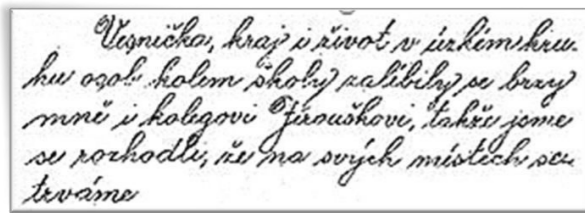 Vesnička, kraj i život v úzkém kru
hu osob kolem školy zalíbily se brzy
mně i kolegovi Jirouškovi, takže jsme
se rozhodli, že na svých místech se
trváme